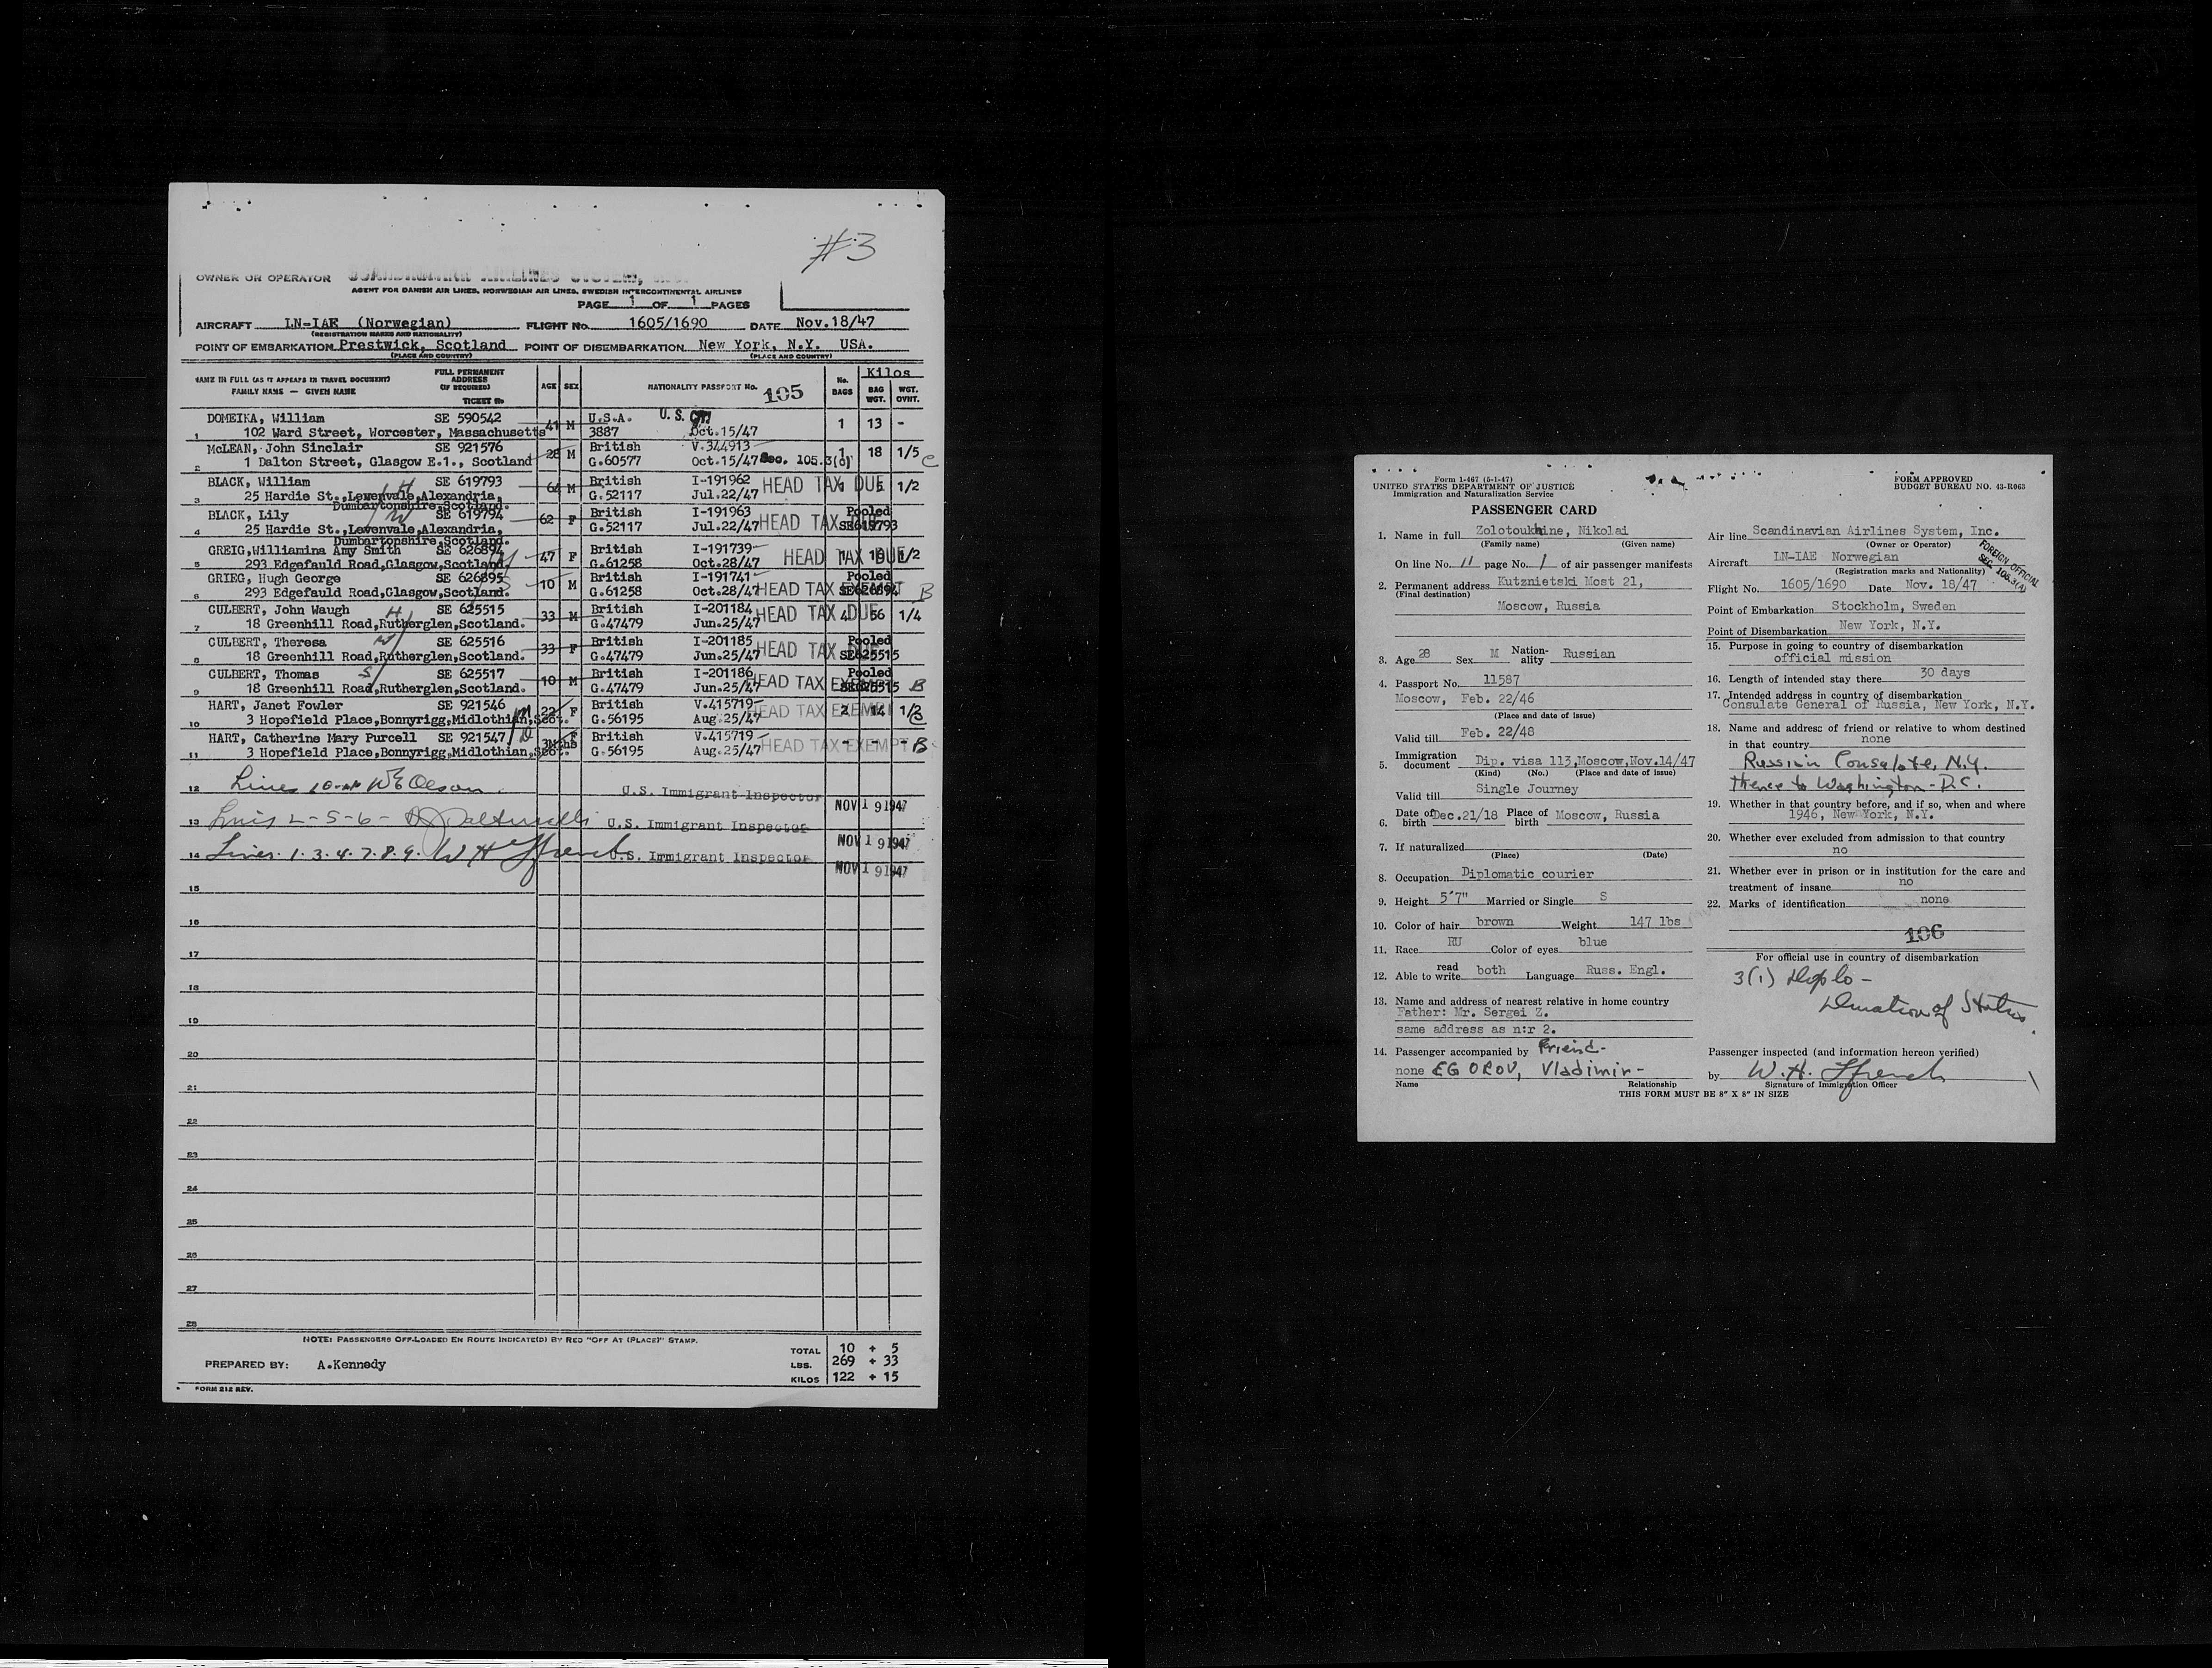 #3
OWNER OR OPERATOR SCANDINAVIAN AIRLINES SYSTEM, INC.
AGENT FOR DANISH AIR LINES, NORWEGIAN AIR LINES, SWEDISH INTERCONTINENTAL AIRLINES
PAGE 1 OF 1 PAGES
AIRCRAFT LN-IAE (Norwegian) FLIGHT No. 1605/1690 DATE Nov.18/47
(REGISTRATION MARKS AND NATIONALITY)
POINT OF EMBARKATION Prestwick, Scotland POINT OF DISEMBARKATION New York, N.Y. USA.
(PLACE AND COUNTRY) (PLACE AND COUNTRY)
NAME IN FULL (AS IT APPEARS IN TRAVEL DOCUMENT) FULL PERMANENT ADDRESS (IF REQUIRED) AGE SEX NATIONALITY PASSPORT No. 105 No. BAGS Kilos
FAMILY NAME — GIVEN NAME TICKET No BAG WGT. WGT. OVHT.
DOMEIKA, William SE 590542 41 M U.S.A. U. S. CIT. 1 13 -
1 102 Ward Street, Worcester, Massachusetts 3887 Oct.15/47
McLEAN, John Sinclair SE 921576 28 M British V.344913 1 18 1/5 C
2 1 Dalton Street, Glasgow E.1., Scotland G.60577 Oct.15/47 Sec. 105.3(c)
BLACK, William SE 619793 64 M British I-191962 HEAD TAX DUE 1/2
3 25 Hardie St.,Levenvale,Alexandria, G.52117 Jul.22/47
Dumbartonshire,Scotland.
BLACK, Lily SE 619794 62 F British I-191963 HEAD TAX Pooled
4 25 Hardie St.,Levenvale,Alexandria, G.52117 Jul.22/47 SE619793
Dumbartonshire,Scotland.
GREIG,Williamina Amy Smith SE 626894 47 F British I-191739 HEAD TAX DUE 1/2
5 293 Edgefauld Road,Glasgow,Scotland. G.61258 Oct.28/47
GRIEG, Hugh George SE 626895 10 M British I-191741 HEAD TAX EXEMPT Pooled
6 293 Edgefauld Road,Glasgow,Scotland. G.61258 Oct.28/47 SE626894 B
CULBERT, John Waugh SE 625515 33 M British I-201184 HEAD TAX DUE 4 56 1/4
7 18 Greenhill Road,Rutherglen,Scotland. G.47479 Jun.25/47
CULBERT, Theresa SE 625516 33 F British I-201185 HEAD TAX DUE Pooled
8 18 Greenhill Road,Rutherglen,Scotland. G.47479 Jun.25/47 SE625515
CULBERT, Thomas SE 625517 10 M British I-201186 HEAD TAX EXEMPT Pooled
9 18 Greenhill Road,Rutherglen,Scotland. G.47479 Jun.25/47 SE625515 B
HART, Janet Fowler SE 921546 22 F British V.415719 HEAD TAX EXEMPT 2 14 1/2
10 3 Hopefield Place,Bonnyrigg,Midlothian,Scot. G.56195 Aug.25/47 C
HART, Catherine Mary Purcell SE 921547 3Mths F British V.415719 HEAD TAX EXEMPT - - - B
11 3 Hopefield Place,Bonnyrigg,Midlothian,Scot. G.56195 Aug.25/47
12 Lines 10-11 W E Olson U.S. Immigrant Inspector NOV 19 1947
13 Lines 2-5-6- U.S. Immigrant Inspector NOV 19 1947
14 Lines 1.3.4.7.8.9. W H Ffrench U.S. Immigrant Inspector NOV 19 1947
15
16
17
18
19
20
21
22
23
24
25
26
27
28
NOTE: PASSENGERS OFF-LOADED EN ROUTE INDICATE(D) BY RED "OFF AT (PLACE)" STAMP.
TOTAL 10 + 5
PREPARED BY: A.Kennedy LBS. 269 + 33
KILOS 122 + 15
FORM 212 REV.
Form I-467 (5-1-47)
UNITED STATES DEPARTMENT OF JUSTICE
Immigration and Naturalization Service
FORM APPROVED
BUDGET BUREAU NO. 43-R063
PASSENGER CARD
1. Name in full Zolotoukhine, Nikolai
(Family name) (Given name)
On line No. 11 page No. 1 of air passenger manifests
2. Permanent address Kutznietski Most 21,
(Final destination)
Moscow, Russia
3. Age 28 Sex M Nationality Russian
4. Passport No. 11587
Moscow, Feb. 22/46
(Place and date of issue)
Valid till Feb. 22/48
5. Immigration document Dip. visa 113,Moscow,Nov.14/47
(Kind) (No.) (Place and date of issue)
Valid till Single Journey
6. Date of birth Dec.21/18 Place of birth Moscow, Russia
7. If naturalized
(Place) (Date)
8. Occupation Diplomatic courier
9. Height 5'7" Married or Single S
10. Color of hair brown Weight 147 lbs
11. Race RU Color of eyes blue
12. Able to read write both Language Russ. Engl.
13. Name and address of nearest relative in home country
Father: Mr. Sergei Z.
same address as n:r 2.
14. Passenger accompanied by Friend-
none EGOROV, Vladimir-
Name Relationship
Air line Scandinavian Airlines System, Inc.
(Owner or Operator)
Aircraft LN-IAE Norwegian
(Registration marks and Nationality)
FOREIGN OFFICIAL
SEC. 105.3(1)
Flight No. 1605/1690 Date Nov. 18/47
Point of Embarkation Stockholm, Sweden
Point of Disembarkation New York, N.Y.
15. Purpose in going to country of disembarkation
official mission
16. Length of intended stay there 30 days
17. Intended address in country of disembarkation
Consulate General of Russia, New York, N.Y.
18. Name and address of friend or relative to whom destined
in that country none
Russian Consulate, N.Y.
thence to Washington-D.C.
19. Whether in that country before, and if so, when and where
1946, New York, N.Y.
20. Whether ever excluded from admission to that country
no
21. Whether ever in prison or in institution for the care and
treatment of insane no
22. Marks of identification none
106
For official use in country of disembarkation
3(1) Diplo-
Duration of Status.
Passenger inspected (and information hereon verified)
by W.H. Ffrench
Signature of Immigration Officer
THIS FORM MUST BE 8" X 8" IN SIZE